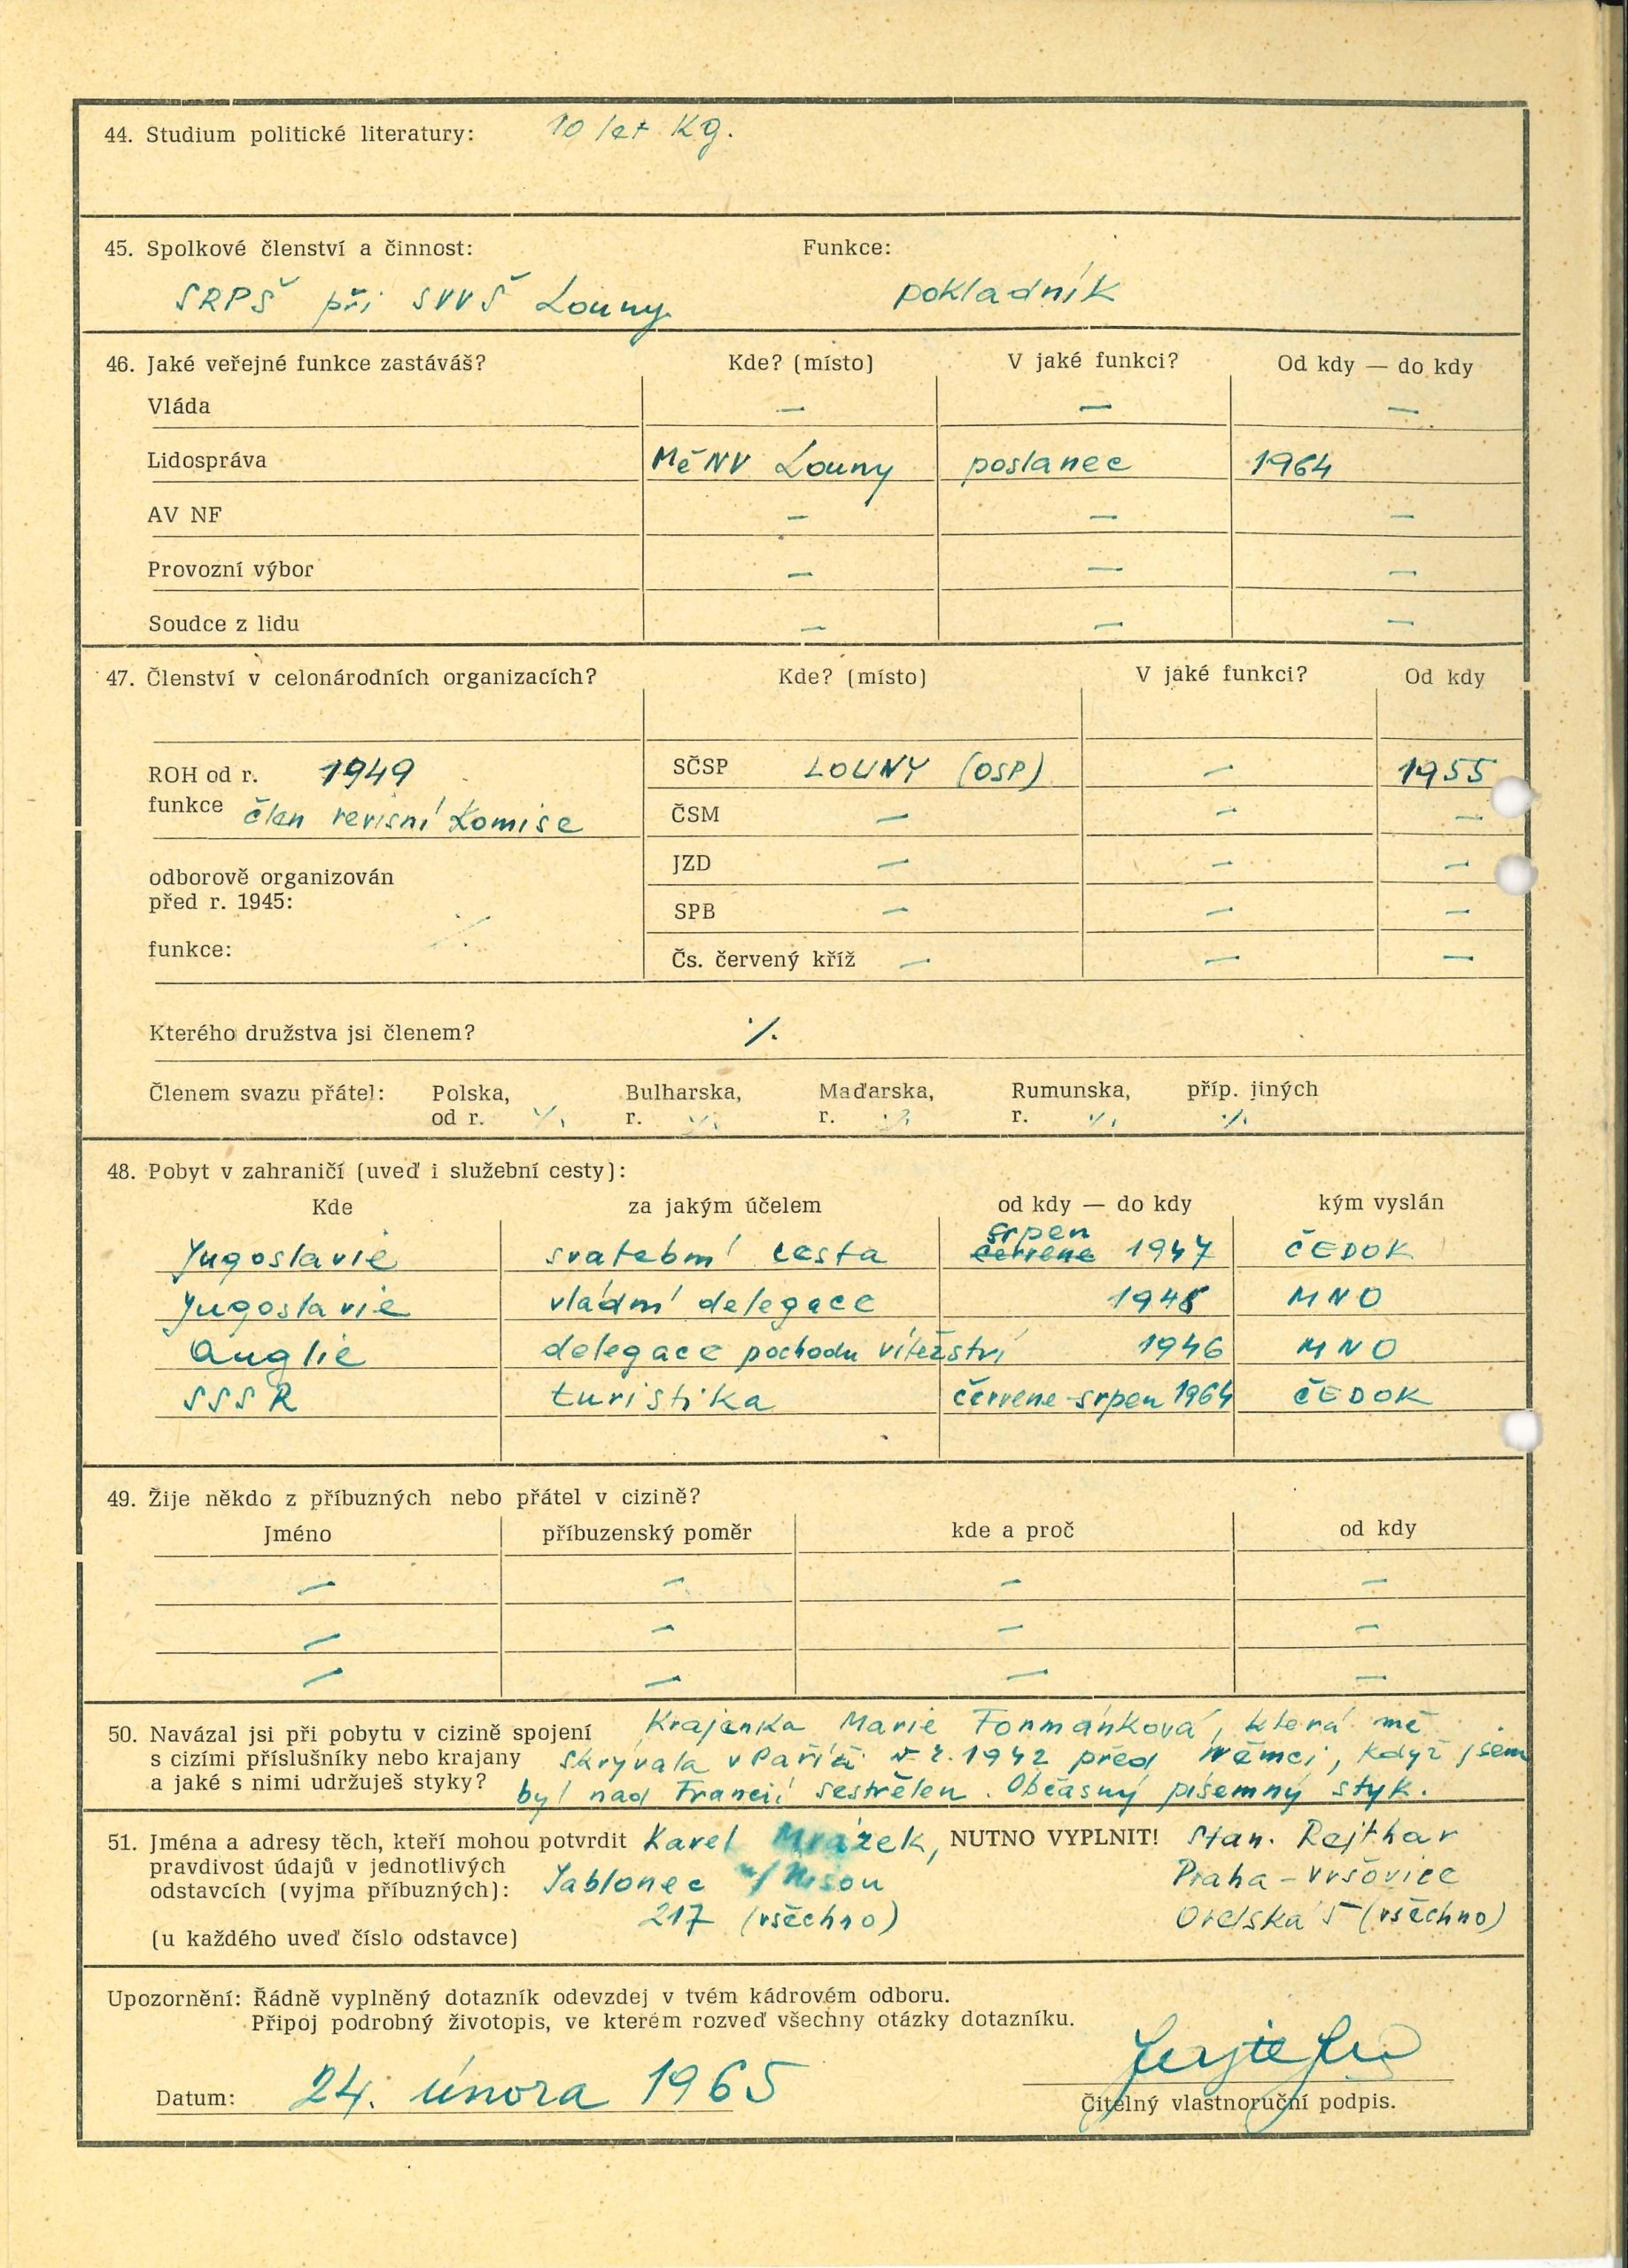 44. Studium politické literatury: 10 let Kg.
45. Spolkové členství a činnost: Funkce:
SRPŠ při SVVŠ Louny pokladník
46. Jaké veřejné funkce zastáváš? Kde? (místo) V jaké funkci? Od kdy — do kdy
Vláda — — —
Lidospráva MěNV Louny poslanec 1964
AV NF — — —
Provozní výbor — — —
Soudce z lidu — — —
47. Členství v celonárodních organizacích? Kde? (místo) V jaké funkci? Od kdy
ROH od r. 1949 SČSP LOUNY (OSP) — 1955
funkce člen revisní komise ČSM — — —
JZD — — —
odborově organizován
před r. 1945:
SPB — — —
funkce: Čs. červený kříž — — —
Kterého družstva jsi členem? ./.
Členem svazu přátel: Polska, Bulharska, Maďarska, Rumunska, příp. jiných
od r. ./. r. ./. r. ./. r. ./. ./.
48. Pobyt v zahraničí (uveď i služební cesty):
Kde za jakým účelem od kdy — do kdy kým vyslán
srpen
Jugoslavie svatební cesta červenec 1947 ČEDOK
Jugoslavie vládní delegace 1948 MNO
Anglie delegace pochodu vítězství 1946 MNO
SSSR turistika červenec-srpen 1964 ČEDOK
49. Žije někdo z příbuzných nebo přátel v cizině?
Jméno příbuzenský poměr kde a proč od kdy
— — — —
— — — —
— — — —
50. Navázal jsi při pobytu v cizině spojení Krajanka Marie Formánková, která mě
s cizími příslušníky nebo krajany skrývala v Paříži v r. 1942 před Němci, když jsem
a jaké s nimi udržuješ styky? byl nad Francií sestřelen. Občasný písemný styk.
51. Jména a adresy těch, kteří mohou potvrdit Karel Mrázek, NUTNO VYPLNIT! Stan. Rejthar
pravdivost údajů v jednotlivých
odstavcích (vyjma příbuzných): Jablonec n/Nisou Praha-Vršovice
217 (všechno) Orelská 5 (všechno)
(u každého uveď číslo odstavce)
Upozornění: Řádně vyplněný dotazník odevzdej v tvém kádrovém odboru.
Připoj podrobný životopis, ve kterém rozveď všechny otázky dotazníku.
Datum: 24. února 1965
Čitelný vlastnoruční podpis.